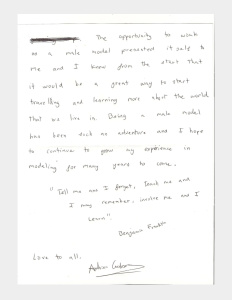 The opportunity to work
as a male model presented it self to
me and I knew from the start that
it would be a great way to start
travelling and learning more about the world
that we live in. Being a male model
has been such an adventure and I hope
to continue to grow my experience in
modeling for many years to come.
"Tell me and I forget, Teach me and
I may remember, involve me and I
learn".
Benjamin Franklin
Love to all,